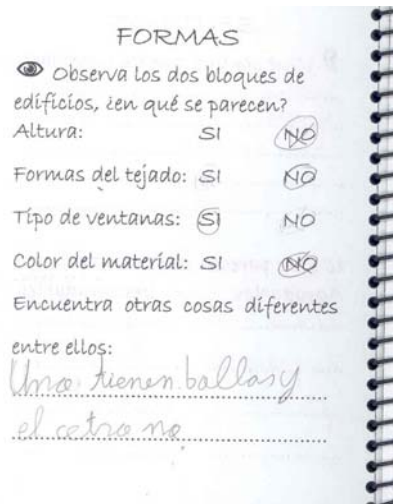 FORMAS
Observa los dos bloques de
edificios, ¿en qué se parecen?
Altura: SI NO
Formas del tejado: SI NO
Tipo de ventanas: SI NO
Color del material: SI NO
Encuentra otras cosas diferentes
entre ellos:
Uno tienen ballas y
el cotro no